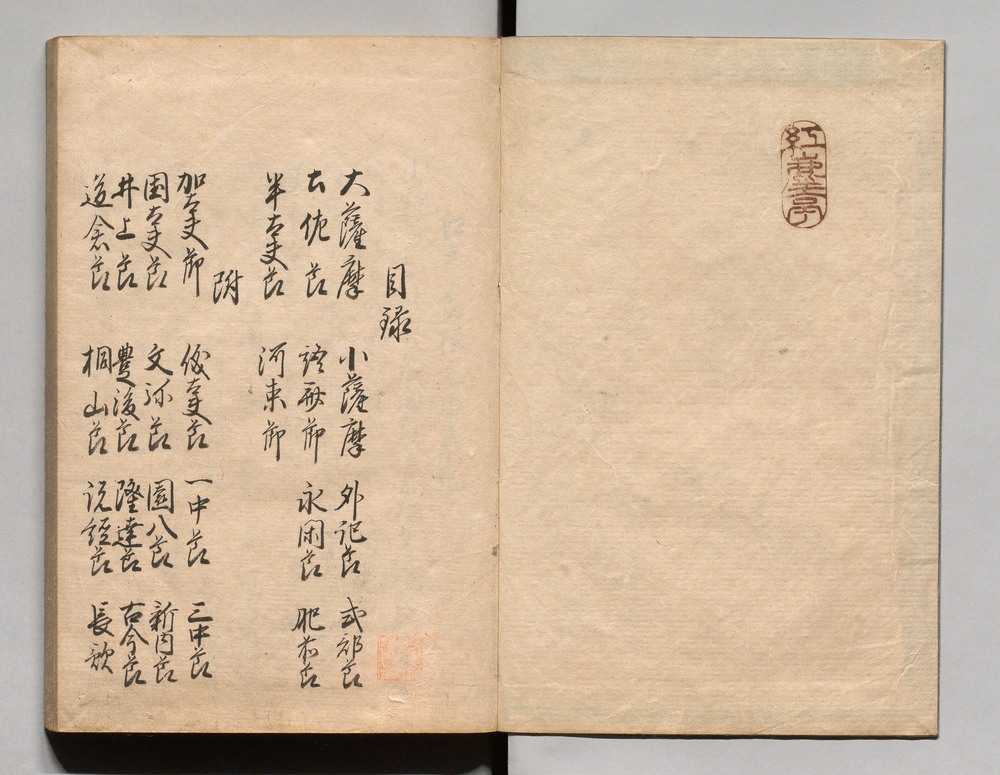 目録
大薩摩 小薩摩 外記節 式部節
土佐節 語斎節 永閑節 肥前節
半太夫節 河東節
附
加太夫節 一中節 三中節
国太夫節 文弥節 薗八節 新内節
井上節 豊後節 隆達節 古今節
道念節 桐山節 説経節 長歌